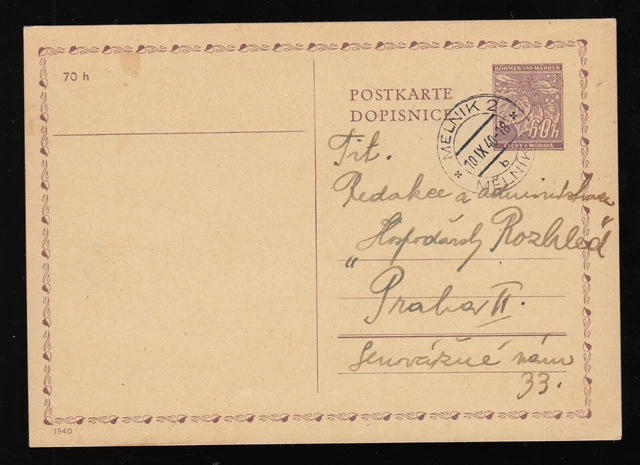 70 h
POSTKARTE
DOPISNICE
BÖHMEN UND MÄHREN
60h
ČECHY A MORAVA
MELNIK 2
10 IX 40-18
b
MĚLNÍK
Tit.
Redakce a administrace
„Hospodářský Rozhled"
Praha II.
Senovážné nám
33.
1940